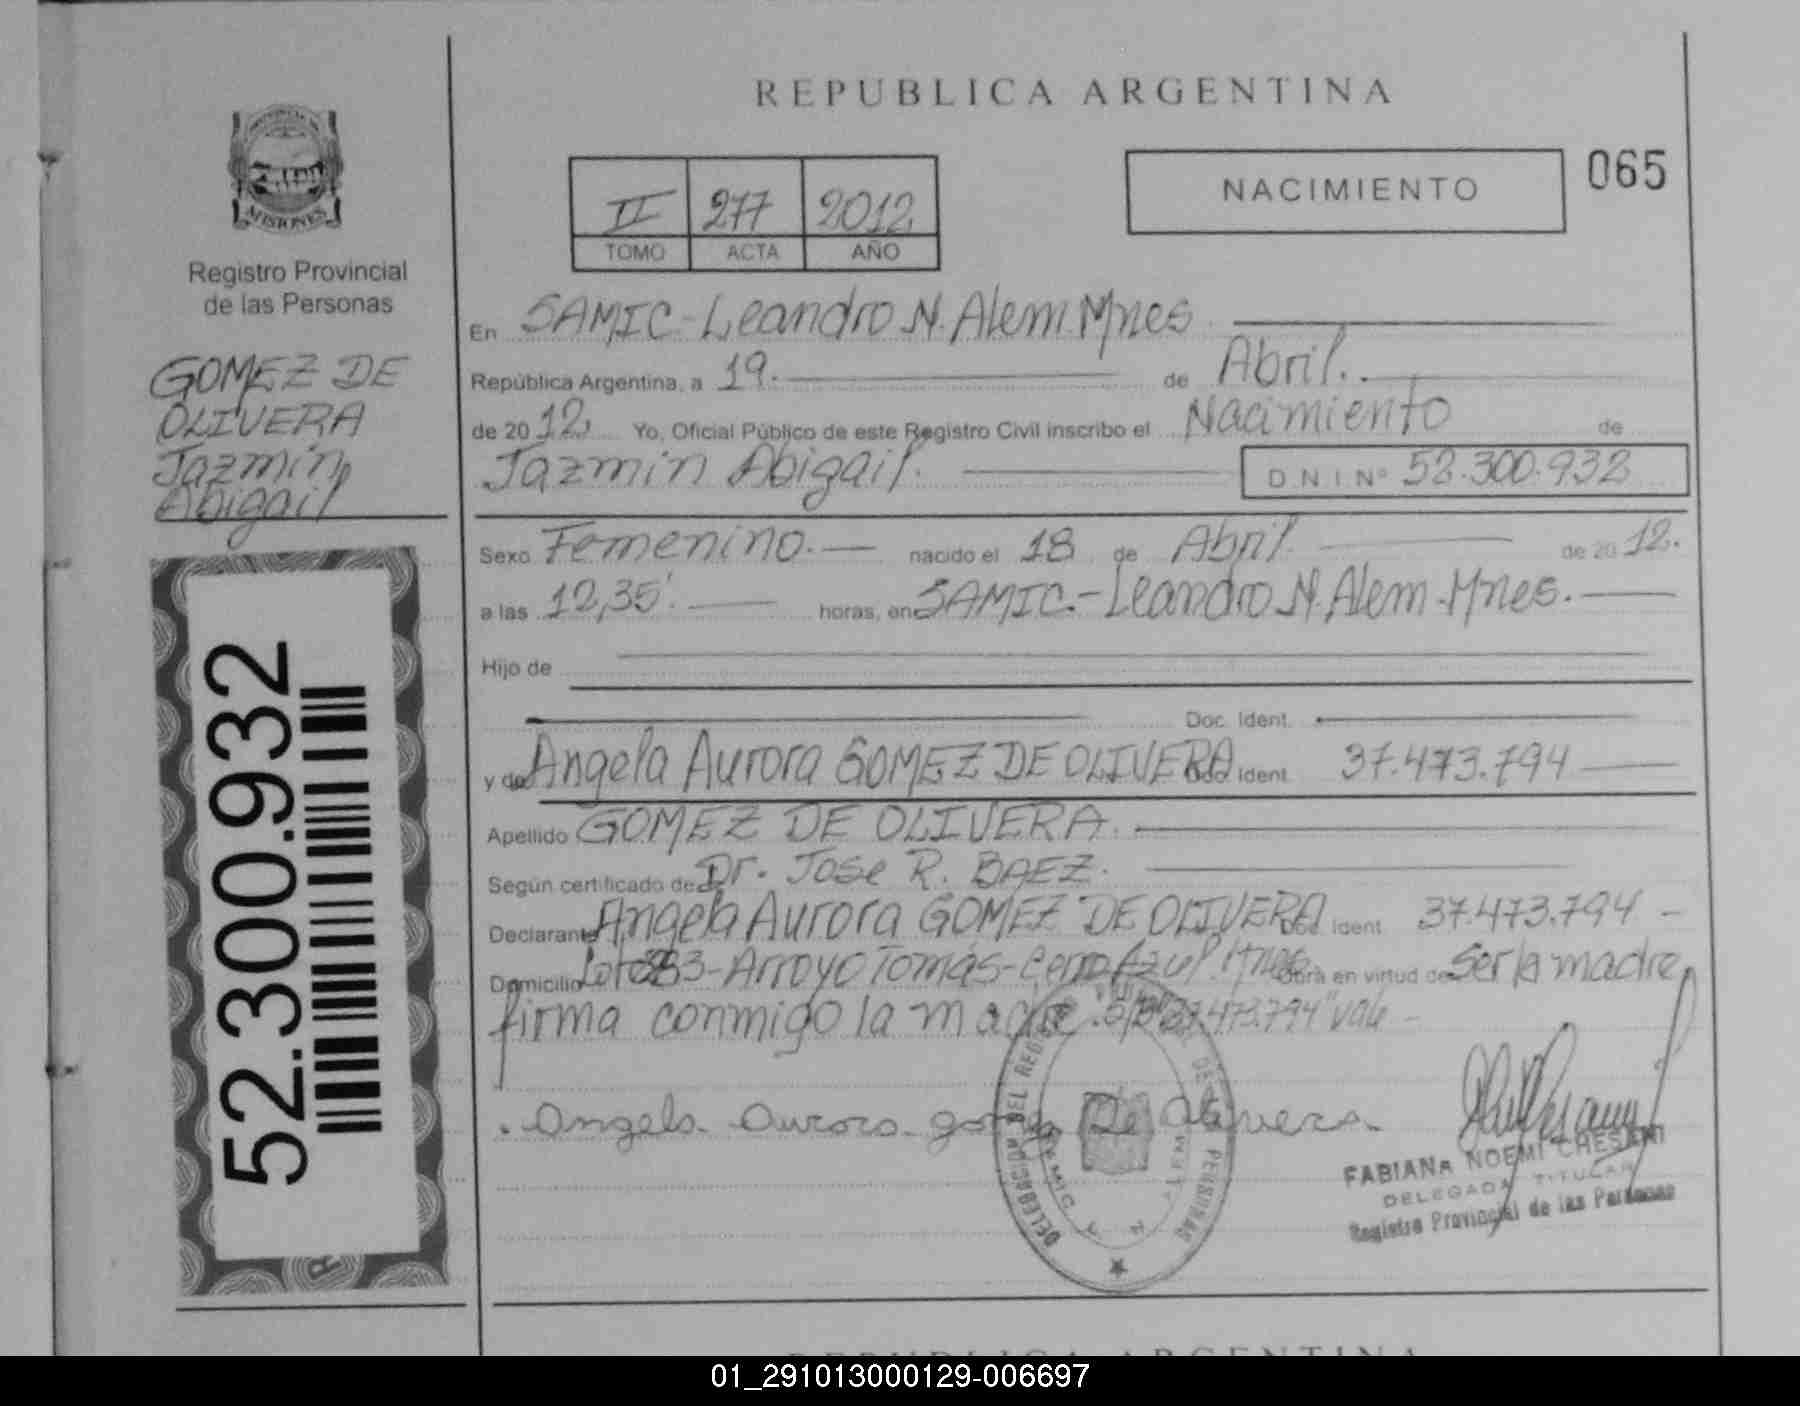 REPUBLICA ARGENTINA
NACIMIENTO
065
II 277 2012
TOMO ACTA AÑO
MISIONES
Registro Provincial
de las Personas
GOMEZ DE
OLIVERA
Jazmín
Abigail
52.300.932
En SAMIC-Leandro N. Alem Mnes
República Argentina, a 19. de Abril.
de 2012. Yo, Oficial Público de este Registro Civil inscribo el Nacimiento de
Jazmín Abigail. D N I Nº 52.300.932
Sexo Femenino. nacido el 18 de Abril de 2012.
a las 12,35'. horas, en SAMIC.-Leandro N. Alem-Mnes.
Hijo de
Doc. Ident.
y de Angela Aurora GOMEZ DE OLIVERA Doc. Ident. 37.473.794
Apellido GOMEZ DE OLIVERA.
Según certificado de Dr. Jose R. BAEZ.
Declarante Angela Aurora GOMEZ DE OLIVERA Doc. Ident. 37.473.794
Domicilio Lote Arroyo Tomás-Cerro Azul. Mnes Obra en virtud de Ser la madre
firma conmigo la madre. 37.473.794" vale
Angela Aurora gomez De Olivera
FABIANA NOEMI
DELEGADA TITULAR
Registro Provincial de las Personas
REPUBLICA ARGENTINA
01_291013000129-006697